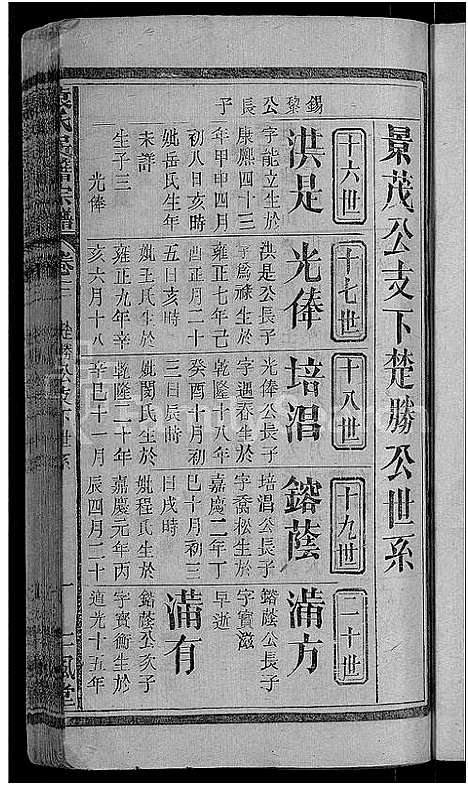 景茂公支下楚勝公世系
十六世
錫黎公長子
洪是
字能立生於
康熙四十三
年甲申四月
初八日亥時
妣岳氏生年
未譜
生子三
光俸
十七世
光俸
洪是公長子
字爲祿生於
雍正七年己
酉正月二十
五日亥時
妣王氏生於
雍正九年辛
亥六月十八
十八世
培淐
光俸公長子
字遇春生於
乾隆十八年
癸酉十月初
三日辰時
妣閔氏生於
乾隆二十年
辛巳十一月
十九世
鎔蔭
培淐公長子
字喬松生於
嘉慶二年丁
巳十月初三
日戌時
妣程氏生於
嘉慶元年丙
辰四月二十
二十世
滿方
鎔蔭公長子
字實滋
早逝
滿有
鎔蔭公次子
字實衡生於
道光十五年
氏宗譜
卷
楚勝公支下世系